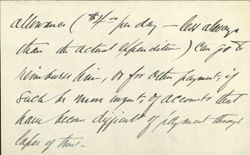 allowance ($4.00 per day – less always
than the actual expenditure) can go to
reimburse him, or for other payments, if
such be more urgent, of accounts that
have become difficult of payment through
lapse of time –